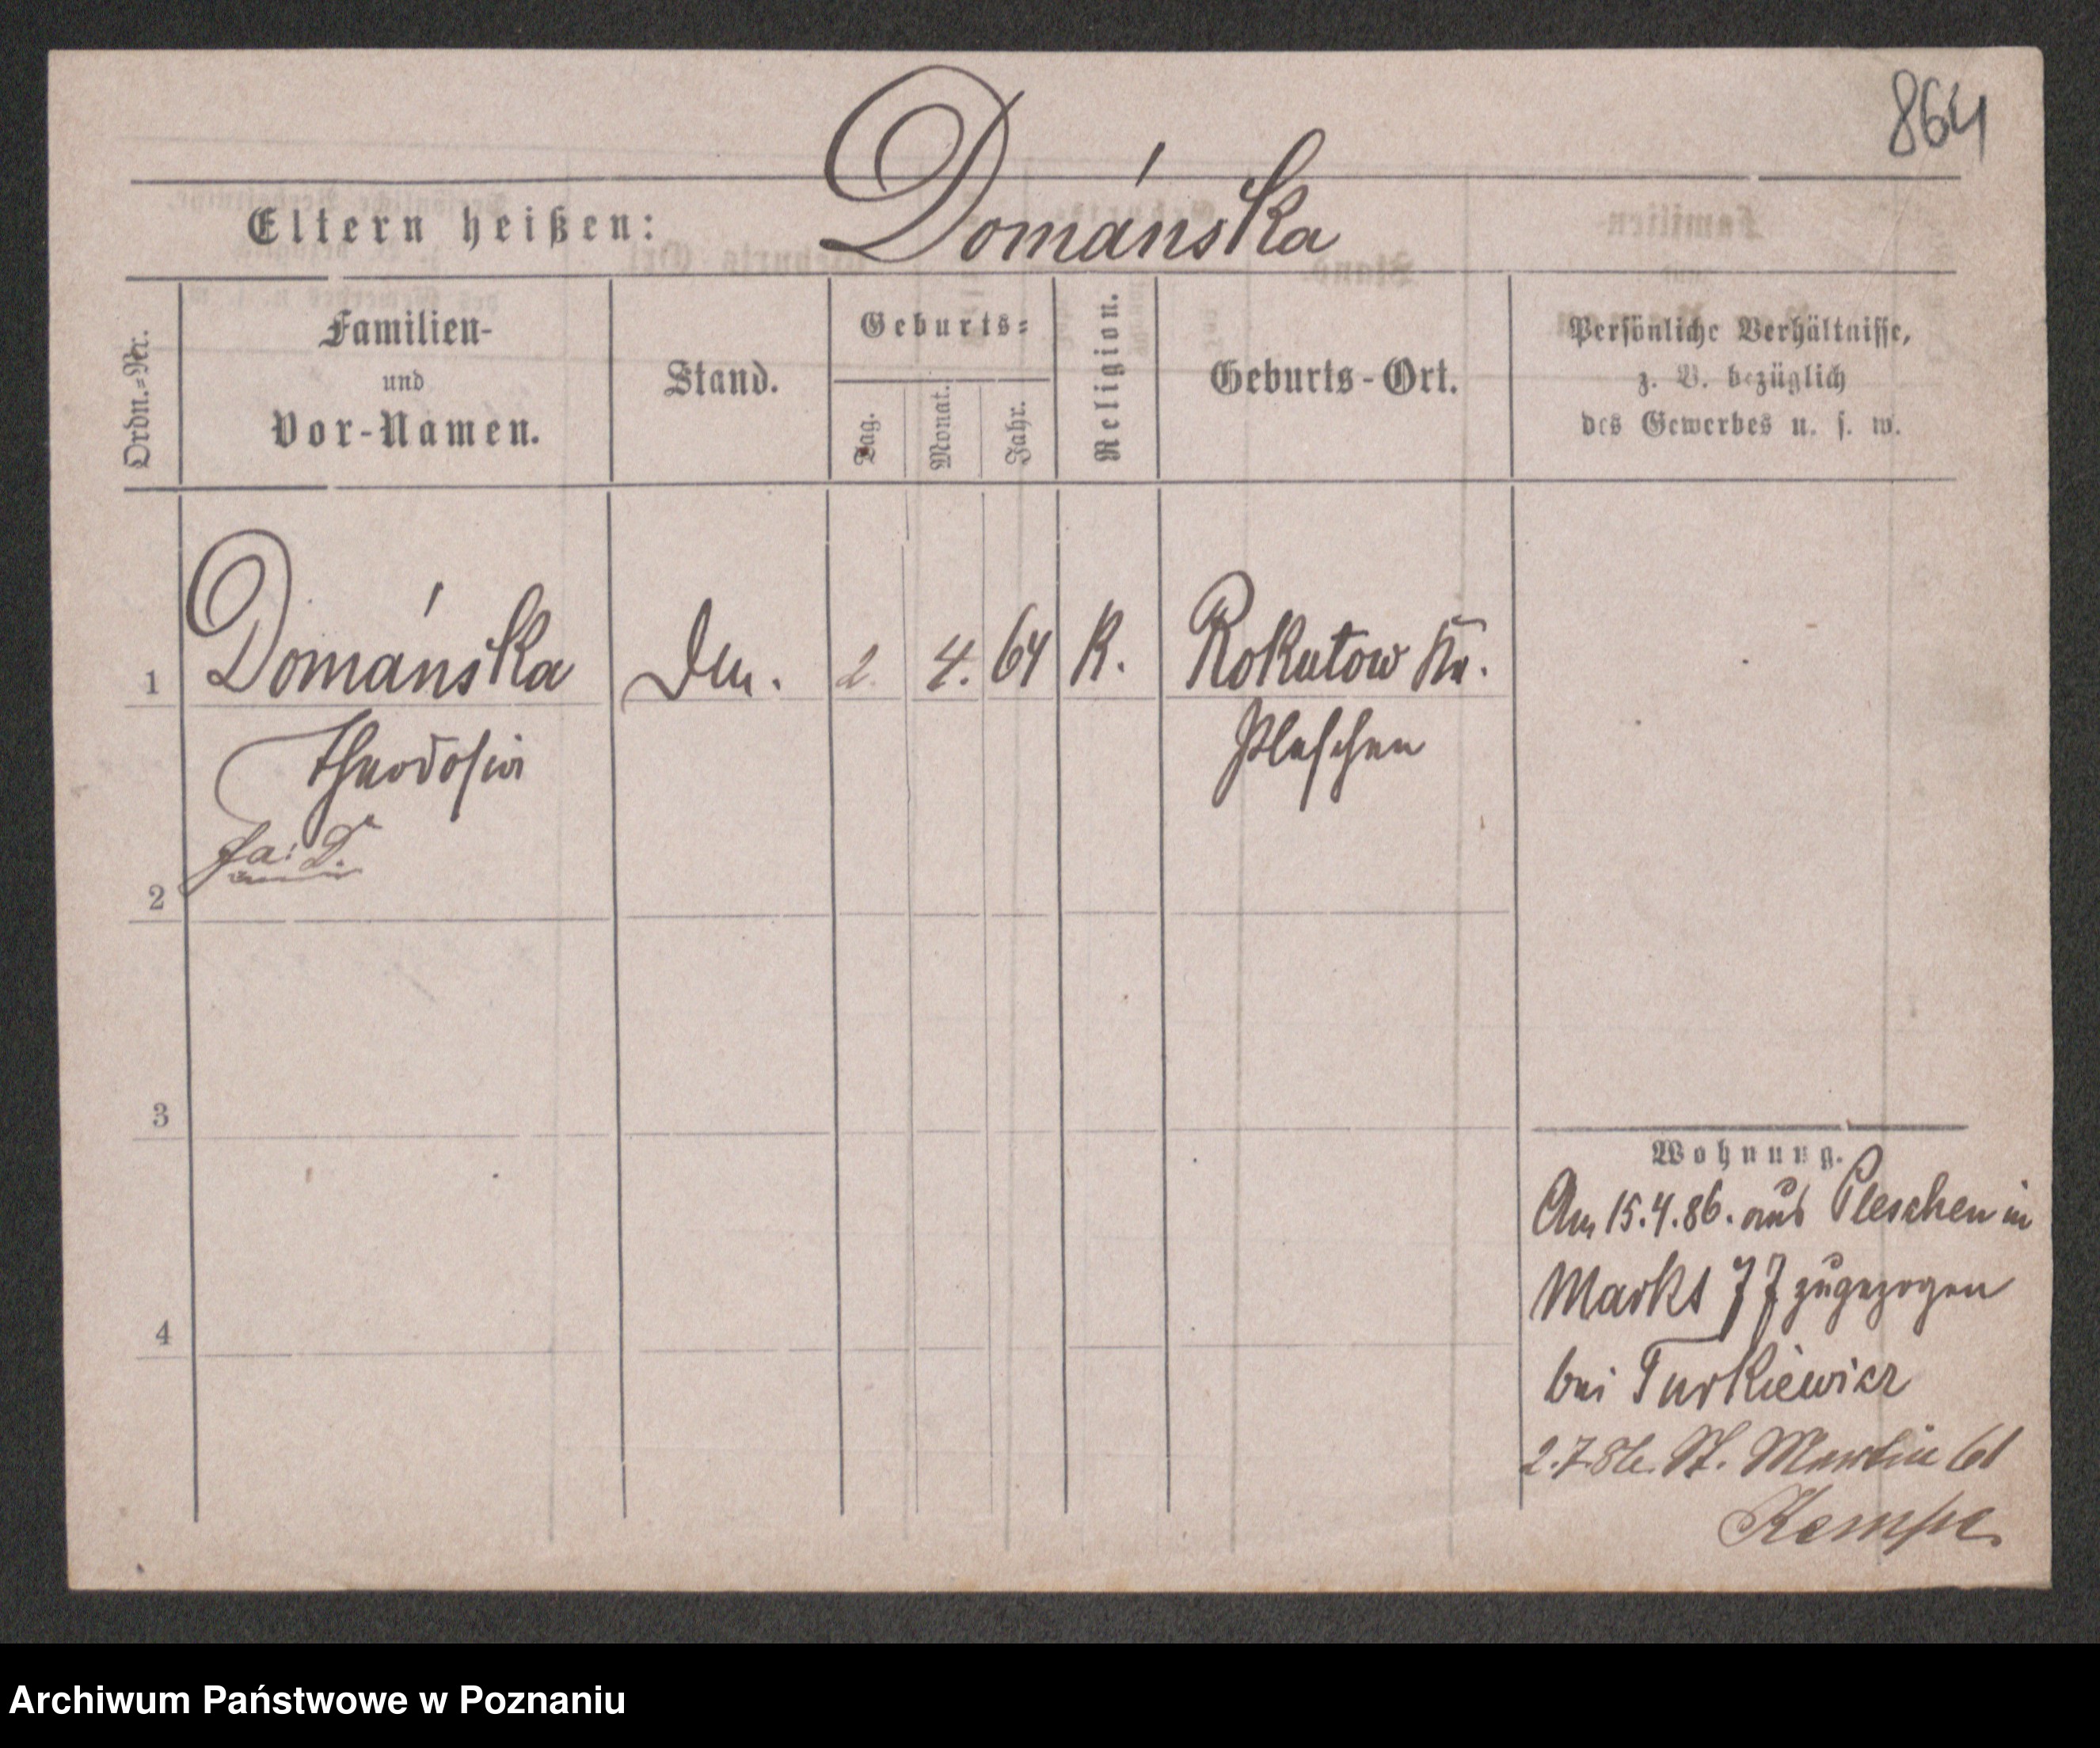 864
Domańska
Eltern heißen:
Ordn.-Nr.
Familien-
und
Vor-Namen.
Stand.
Geburts-
Tag.
Monat.
Jahr.
Religion.
Geburts-Ort.
Persönliche Verhältnisse,
z. B. bezüglich
des Gewerbes u. s. w.
1 Domańska 2. 4. 64 K. Rokutow Kr.
Theodosia Pleschen
2
3
4
Wohnung.
Am 15.4.86. aus Pleschen in
Markt 77 zugezogen
bei Turkiewicz
2.7.86. St. Martin 61
Kempe
Archiwum Państwowe w Poznaniu